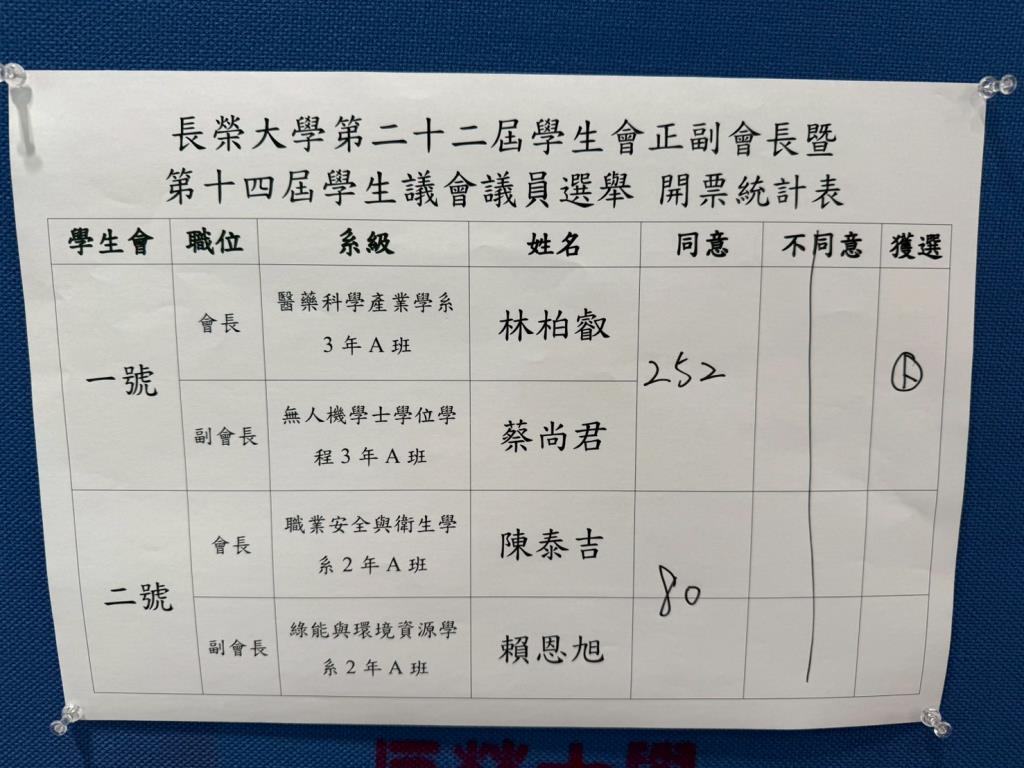 長榮大學第二十二屆學生會正副會長暨
第十四屆學生議會議員選舉 開票統計表
學生會 職位 系級 姓名 同意 不同意 獲選
一號
會長
醫藥科學產業學系
3年A班
林柏叡
252
副會長
無人機學士學位學
程3年A班
蔡尚君
二號
會長
職業安全與衛生學
系2年A班
陳泰吉
80
副會長
綠能與環境資源學
系2年A班
賴恩旭
長榮大學